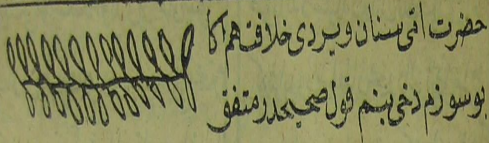 حضرت اتی سنان ویردی خلافت هم آکا
بو سوزم دخی بنم قول صحیحدر متفق